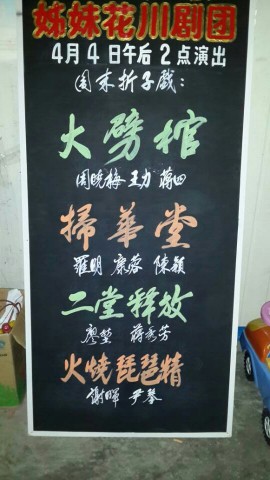 姊妹花川剧团
4月4日午后2点演出
周末折子戏：
大劈棺
周晚梅 王力 蒋四
掃華堂
羅明 蔡蓉 陳穎
二堂释放
廖堃 蒋秀芳
火燒琵琶精
谢暉 尹琴